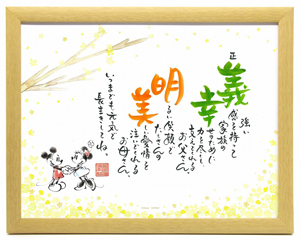 強い
正義感を持って
家族の
幸せのために
力を尽くし
支えてくれる
お父さん。
明るい笑顔と
たくさんの
美しい愛情を
注いでくれる
お母さん。
いつまでも元気で
長生きしてね。